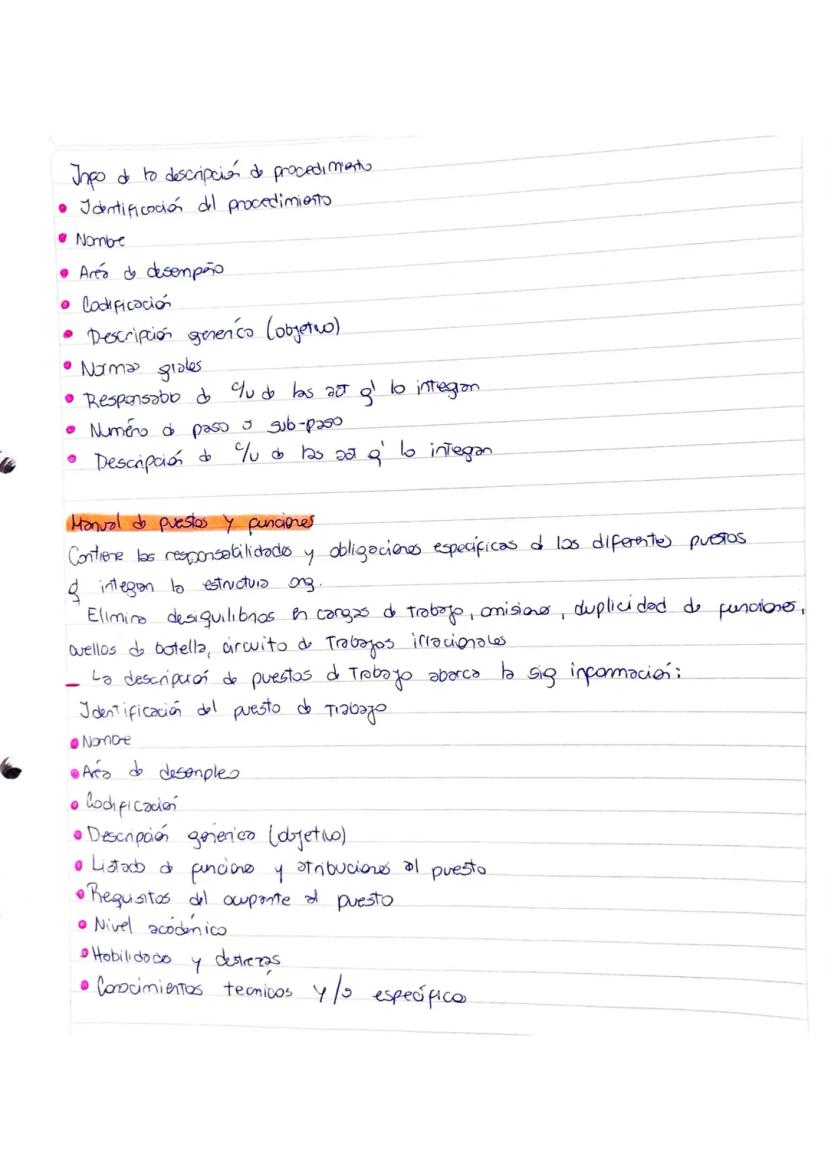 Info d la descripción de procedimiento
• Identificación del procedimiento
• Nombre
• Area de desempeño
• Codificación
• Descripción generica (objetivo)
• Normas grales
• Responsable d c/u de las act q' lo integran
• Numéro d paso o sub-paso
• Descripción d c/u de las act q' lo integan
Manual de puestos y funciones
Contiene las responsabilidades y obligaciones específicas d los diferentes puestos
q integran la estructura org.
Elimina desiquilibrios en cargas de trabajo, omisiones, duplicidad de funciones,
cuellos de botella, circuito de Trabajos irracionales
– La descripción de puestos d Trabajo abarca la sig información:
Identificación del puesto de Trabajo
• Nombre
• Area de desempleo
• Codificación
• Descripción generica (objetivo)
• Listado d funciones y atribuciones al puesto
• Requisitos del ocupante al puesto
• Nivel académico
• Habilidades y destrezas
• Conocimientos tecnicos y/o específico